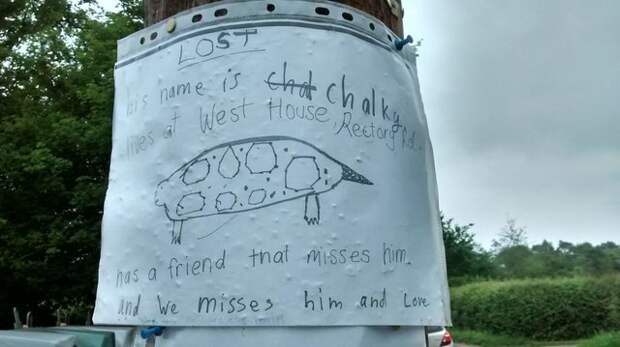 LOST
his name is chal Chalky
lives at West House, Rectory Rd.
has a friend that misses him.
and we misses him and Love